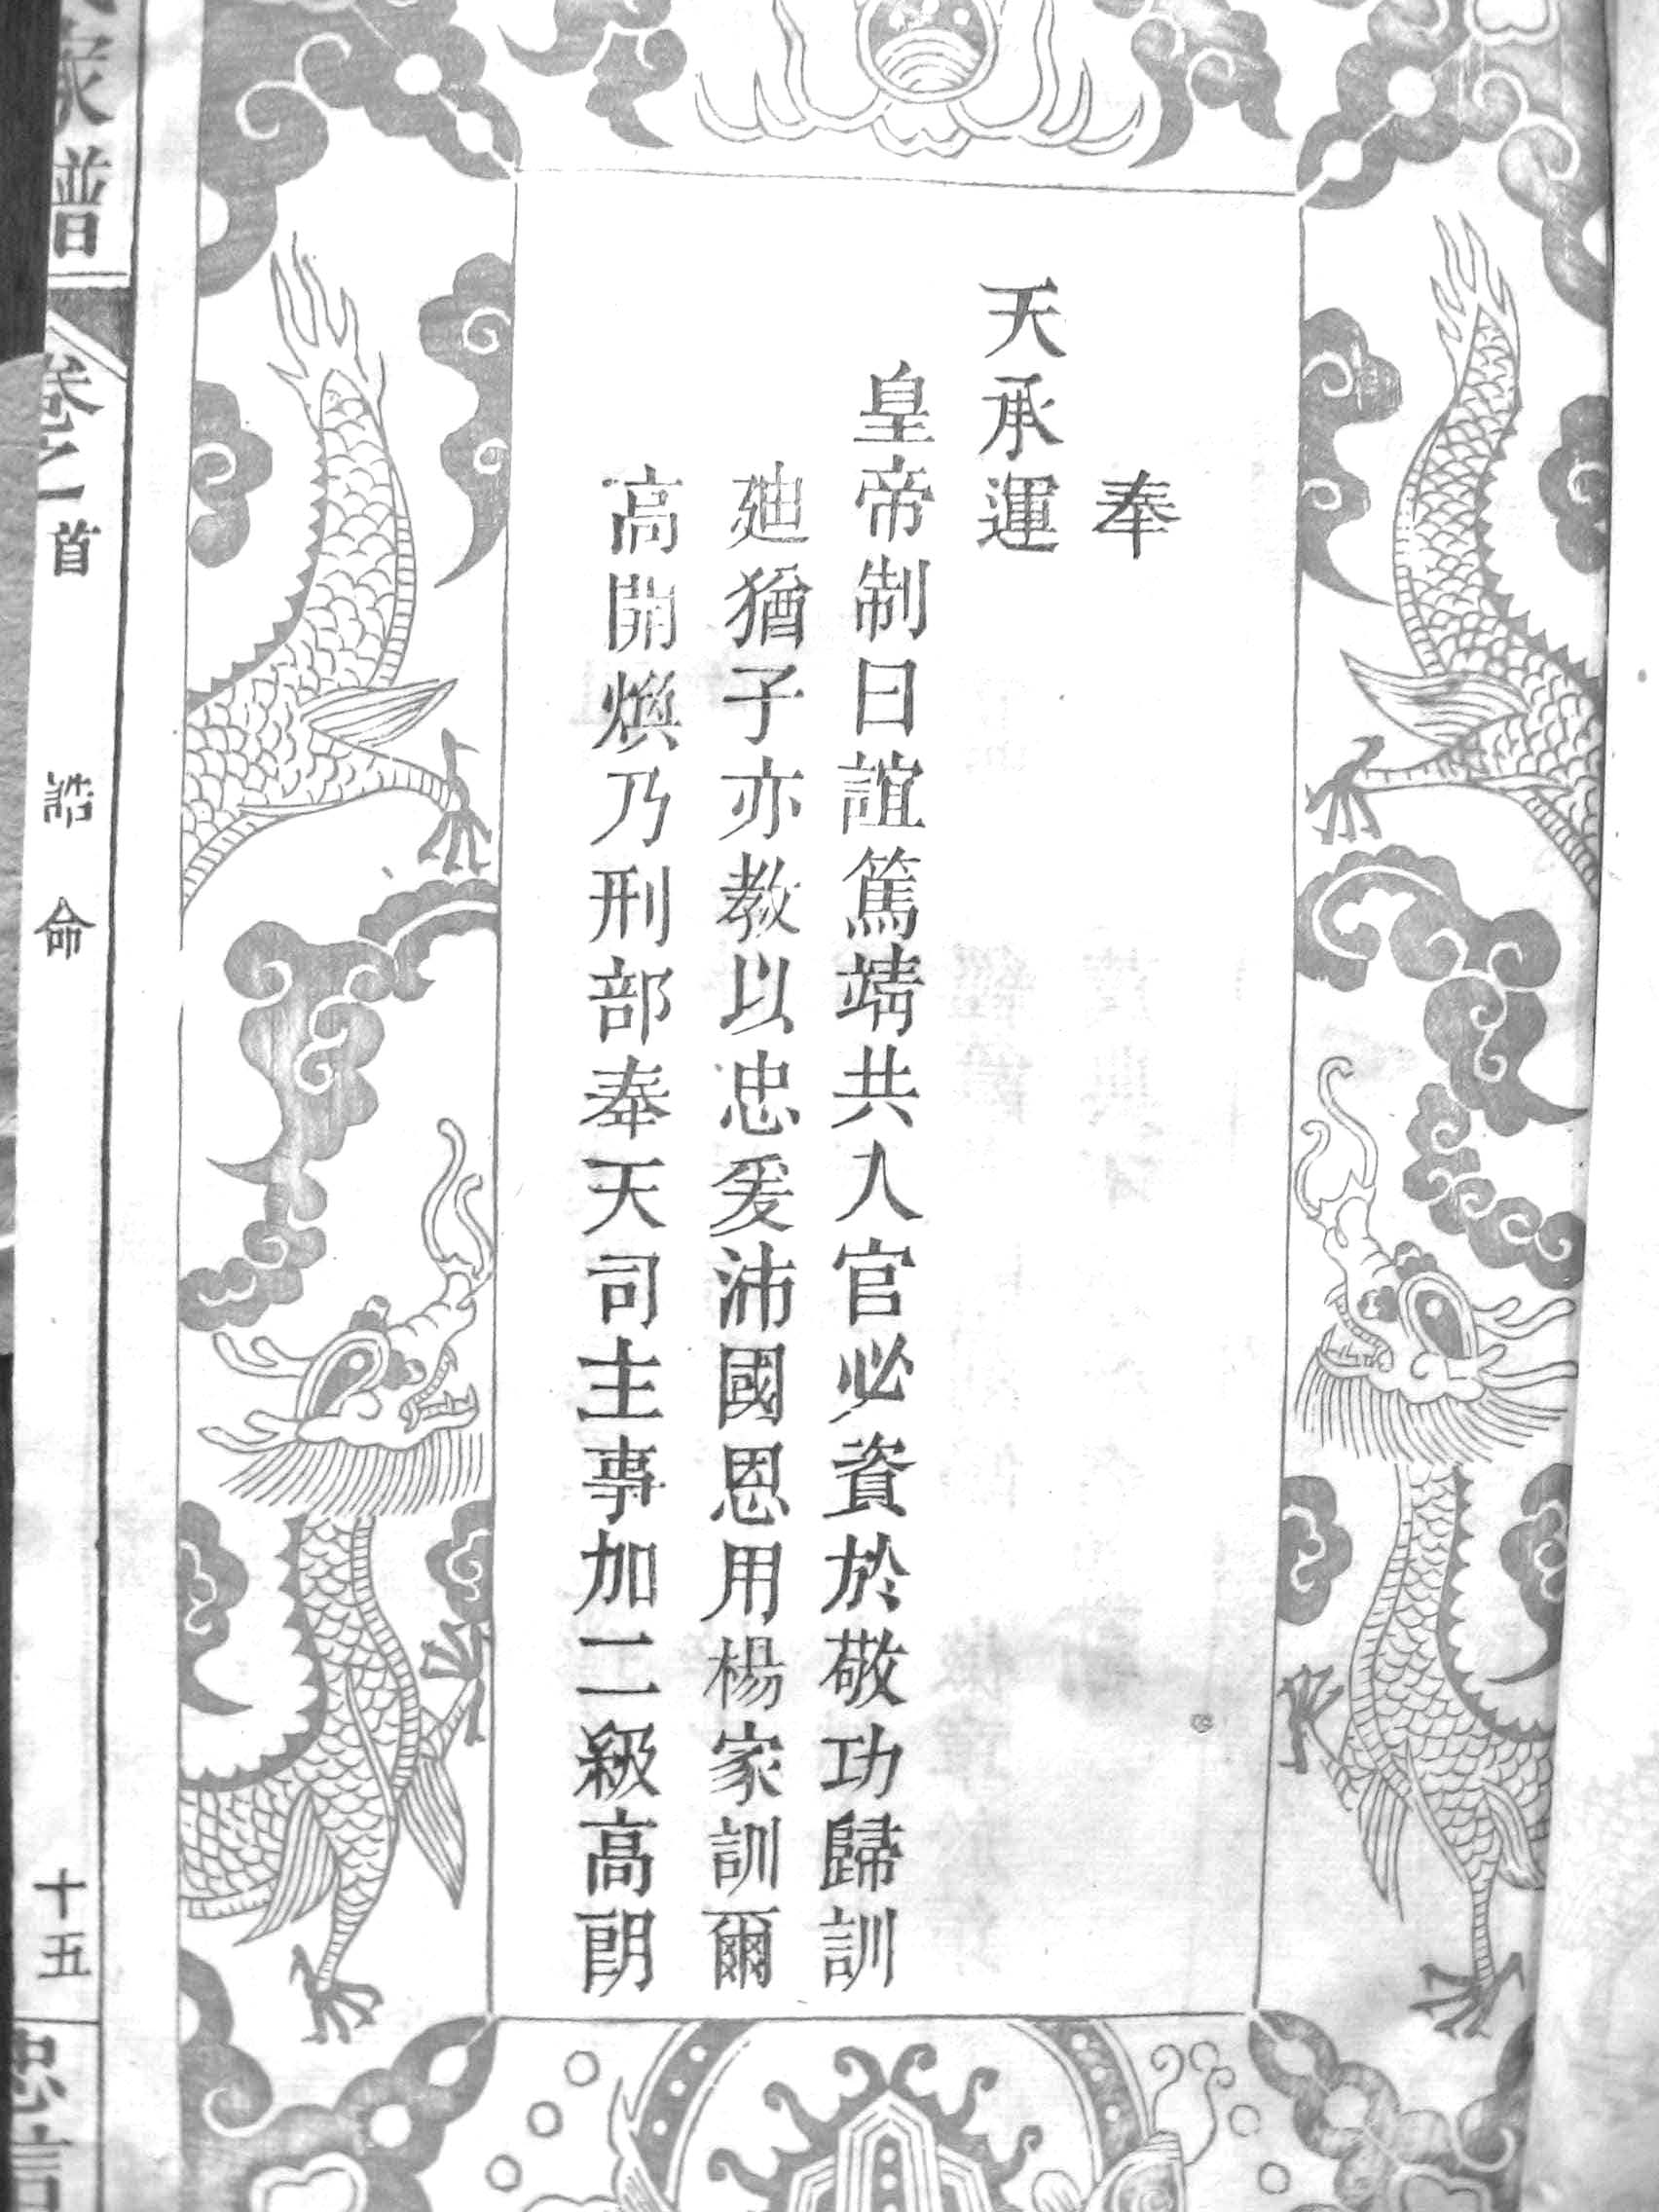 奉
天承運
皇帝制曰誼篤靖共入官必資於敬功歸訓
廸猶子亦教以忠爰沛國恩用楊家訓爾
高開煥乃刑部奉天司主事加二級高朗
家譜
卷之首
誥命
十五
忠信